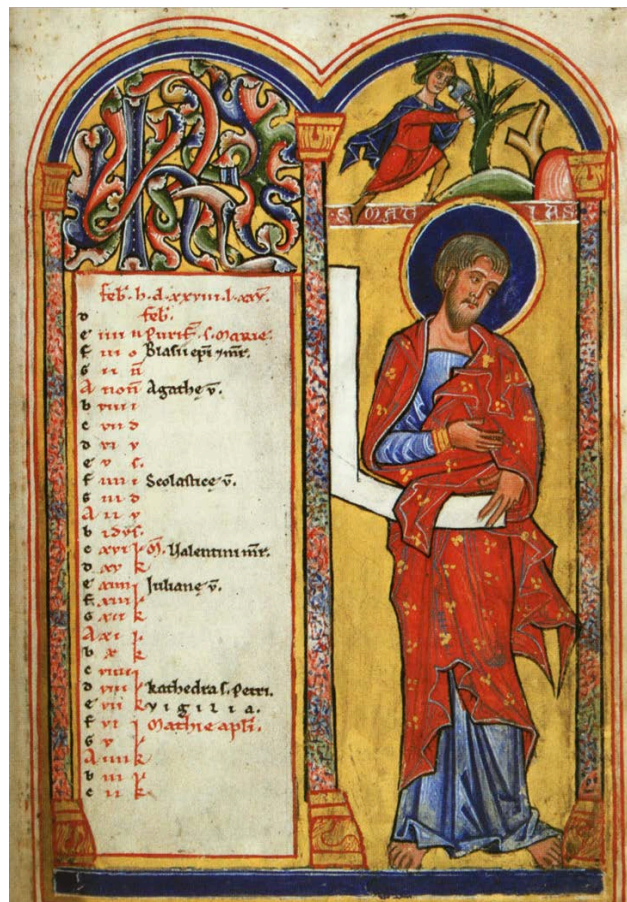 S MAT IAS
feb. h. d. xxviii. l. xxx.
D feb.
e iiii n Purif. s. Marie.
f iii o Blasii epi mr.
g ii n
A non Agathę v.
b viii i
c vii d
d vi v
e v s.
f iiii i Scolasticę v.
g iii d
A ii v
b idus.
c xvi k Valentini mr.
d xv k
e xiiii Julianę v.
f xiii k
g xii k
A xi k
b x k
c viiii
d viii k kathedra s. Petri.
e vii k vigilia.
f vi Mathie apli.
g v k
A iiii k
b iii k
c ii k